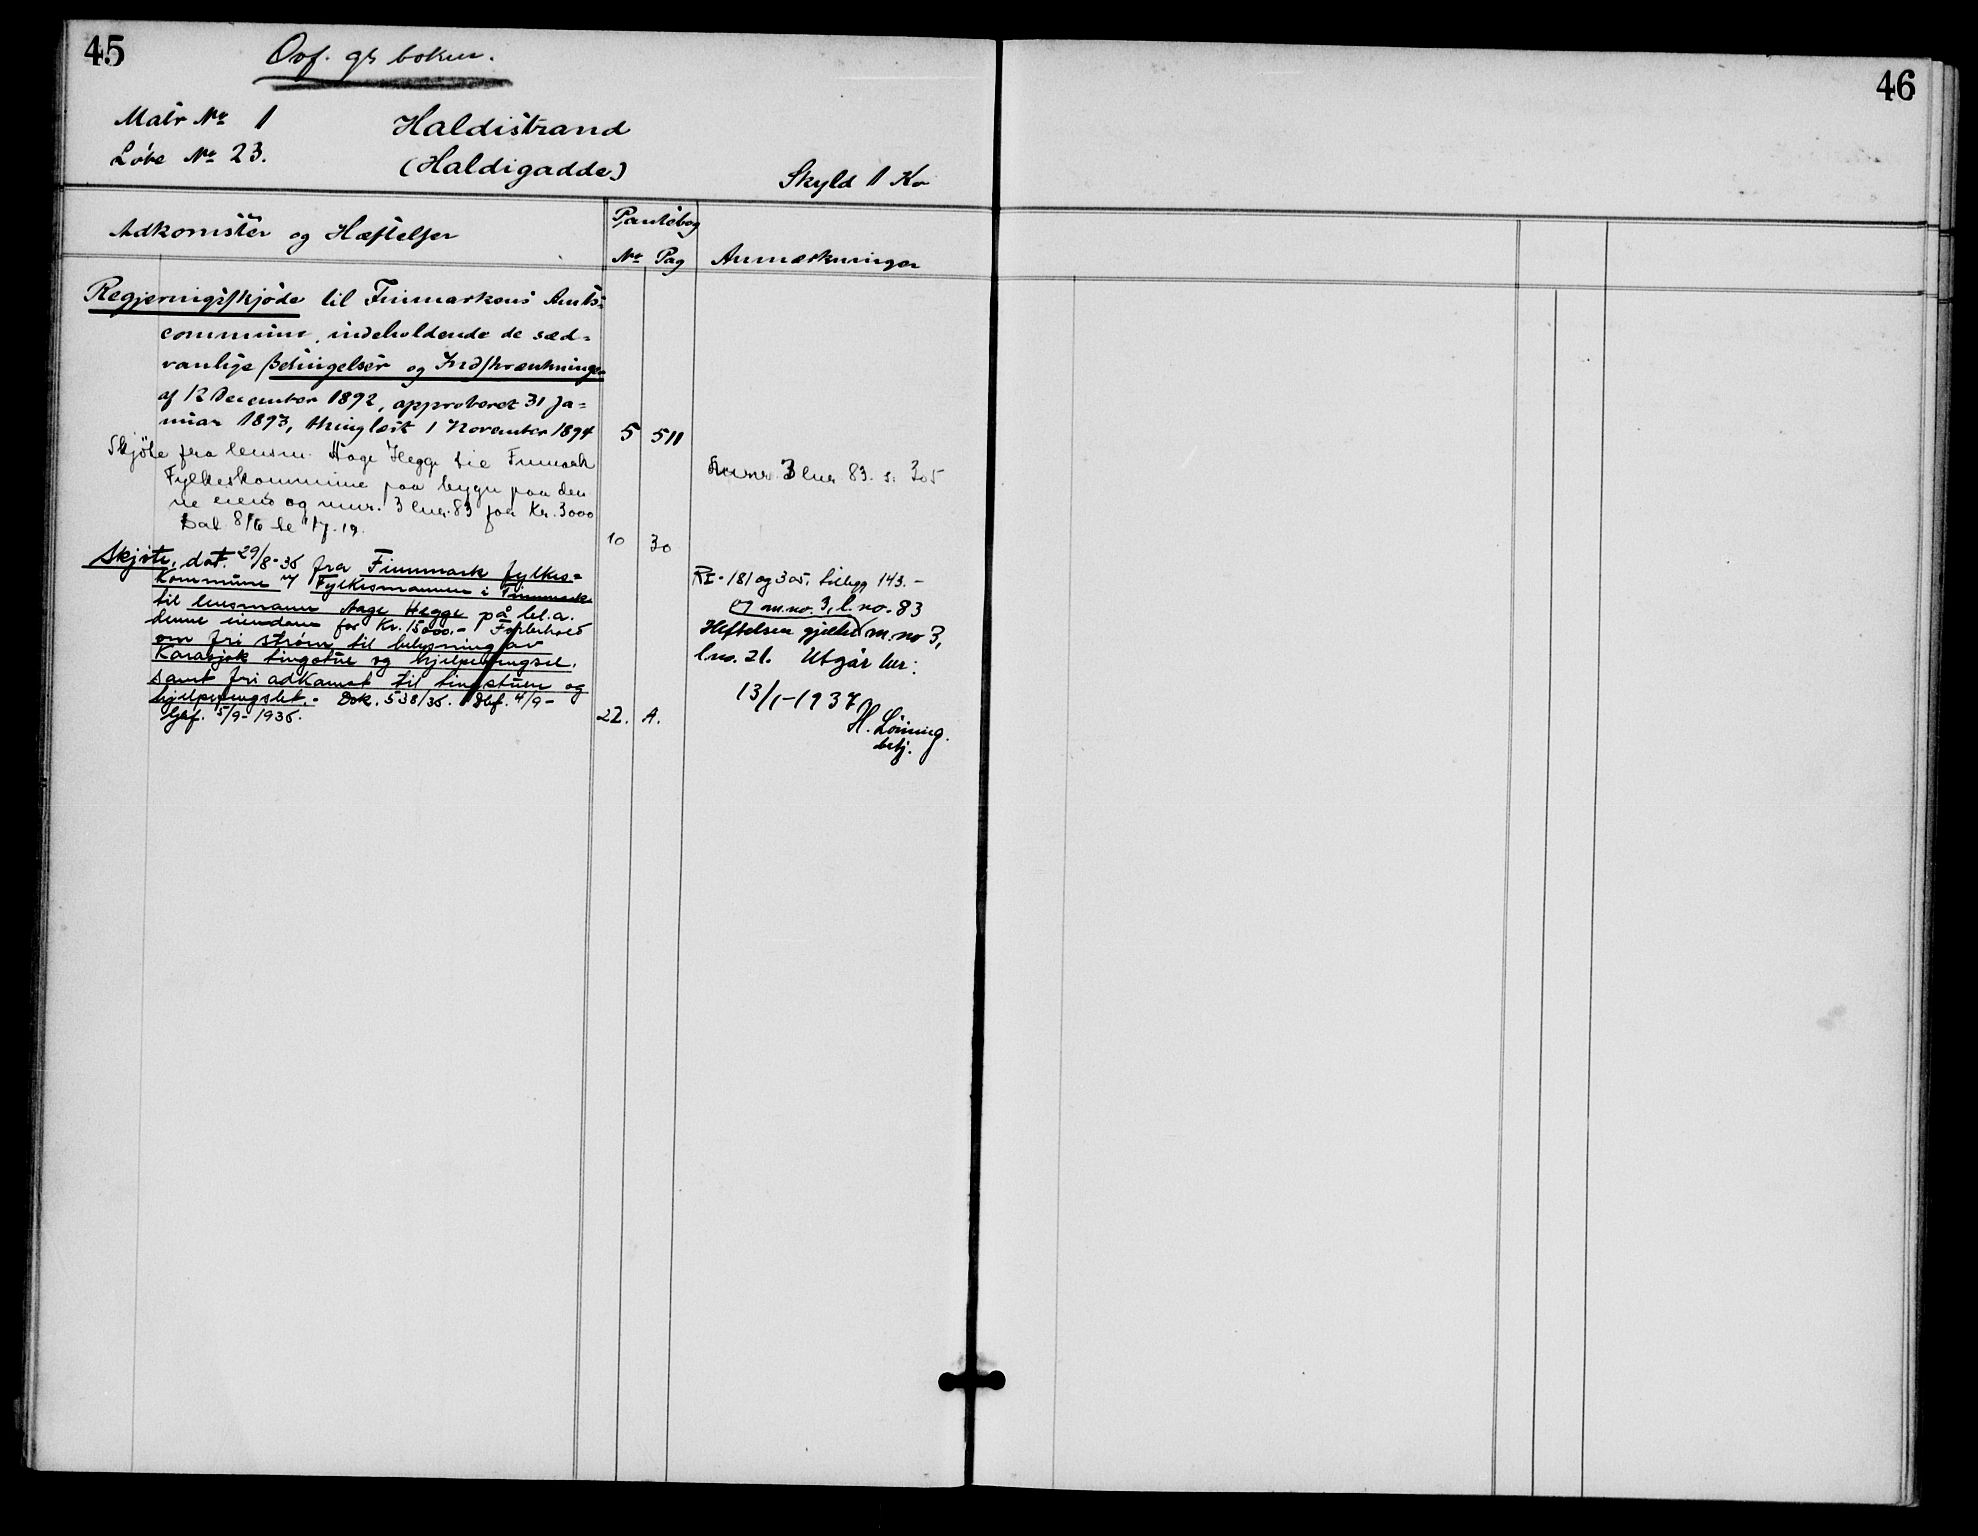 45
46
Ovf. gr boken.
Matr № 1
Haldistrand
Løbe № 23.
(Haldigadde)
Skyld 1 Kr
Adkomster og Hæftelser
Pantebog
№ Pag
Anmærkninger
Regjeringsskjøde til Finmarkens Amts=
commune, indeholdende de sæd=
vanlige Betingelser og Indskrænkninger
af 12 December 1892, approberet 31 Ja=
nuar 1893, thinglæst 1 November 1894
5 511
Skjøte fra lensm. Aage Hegge til Finmark
Fylkeskommune paa bygn paa den
ne eiend og mnr. 3 lnr. 83 for Kr. 3000
Dat 8/6 19.
10 30
3 lnr 83. s. 305
Skjøte, dat. 29/8-36 fra Finnmark fylkes=
kommune v/ Fylkesmannen i Finnmark
til lensmann Aage Hegge på bl.a.
denne eiendom for Kr. 15000.- Forbehold
om fri strøm til belysning av
Karasjok tingstue og hjelpefengsel.
samt fri adkomst til tingstuen og
hjelpefengslet.- Dok. 538/36. Dbf. 4/9-
tglf. 5/9-1936.
22. A.
RI-181 og 305, tillegg 143.-
og m.no. 3, l.no. 83
Heftelsen gjelder m.no 3,
l.no. 21. Utgår her:
13/1-1937
H. Lönning.
betj.